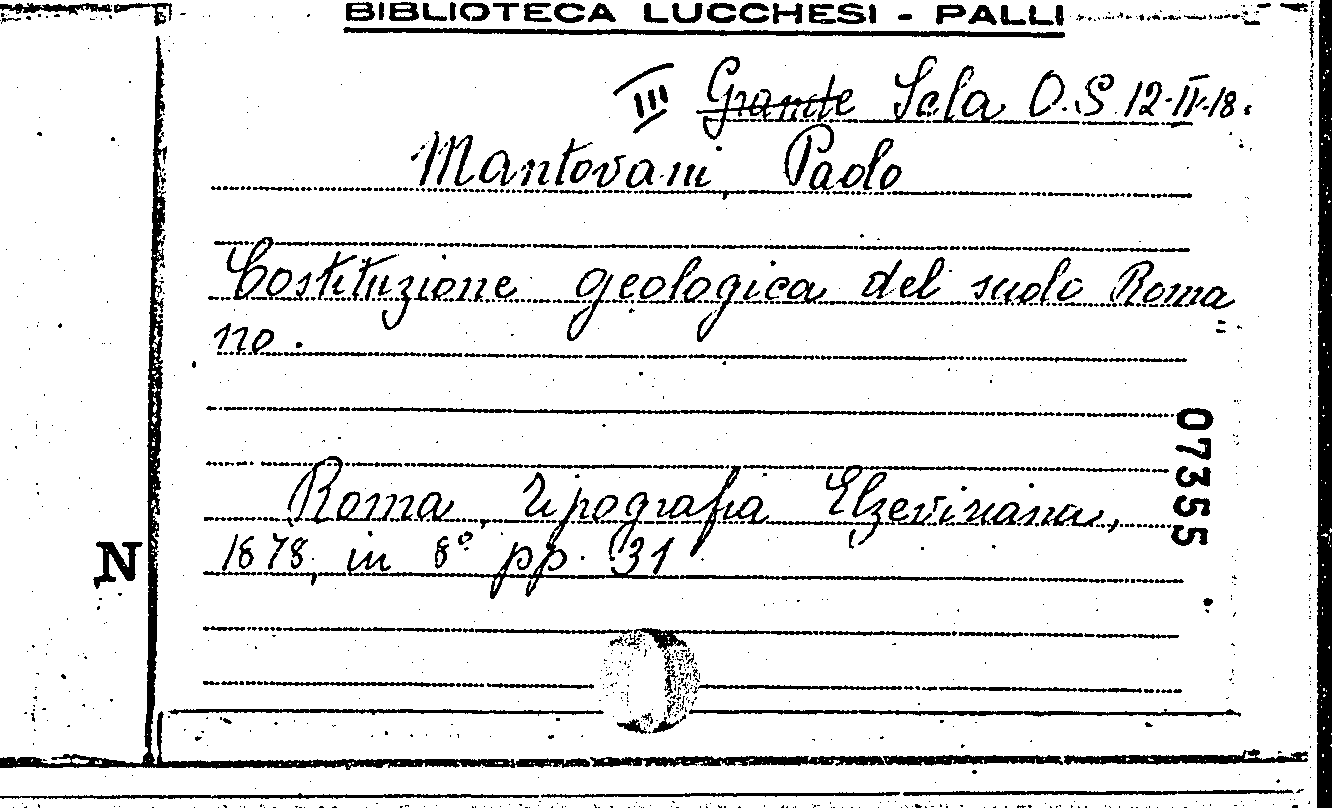 BIBLIOTECA LUCCHESI - PALLI
III Grande Sala O.S 12-II-18.
Mantovani, Paolo
Costituzione geologica del suolo Roma
no.
Roma, Tipografia Elzeviriana,
1878, in 8° pp. 31
07355
N